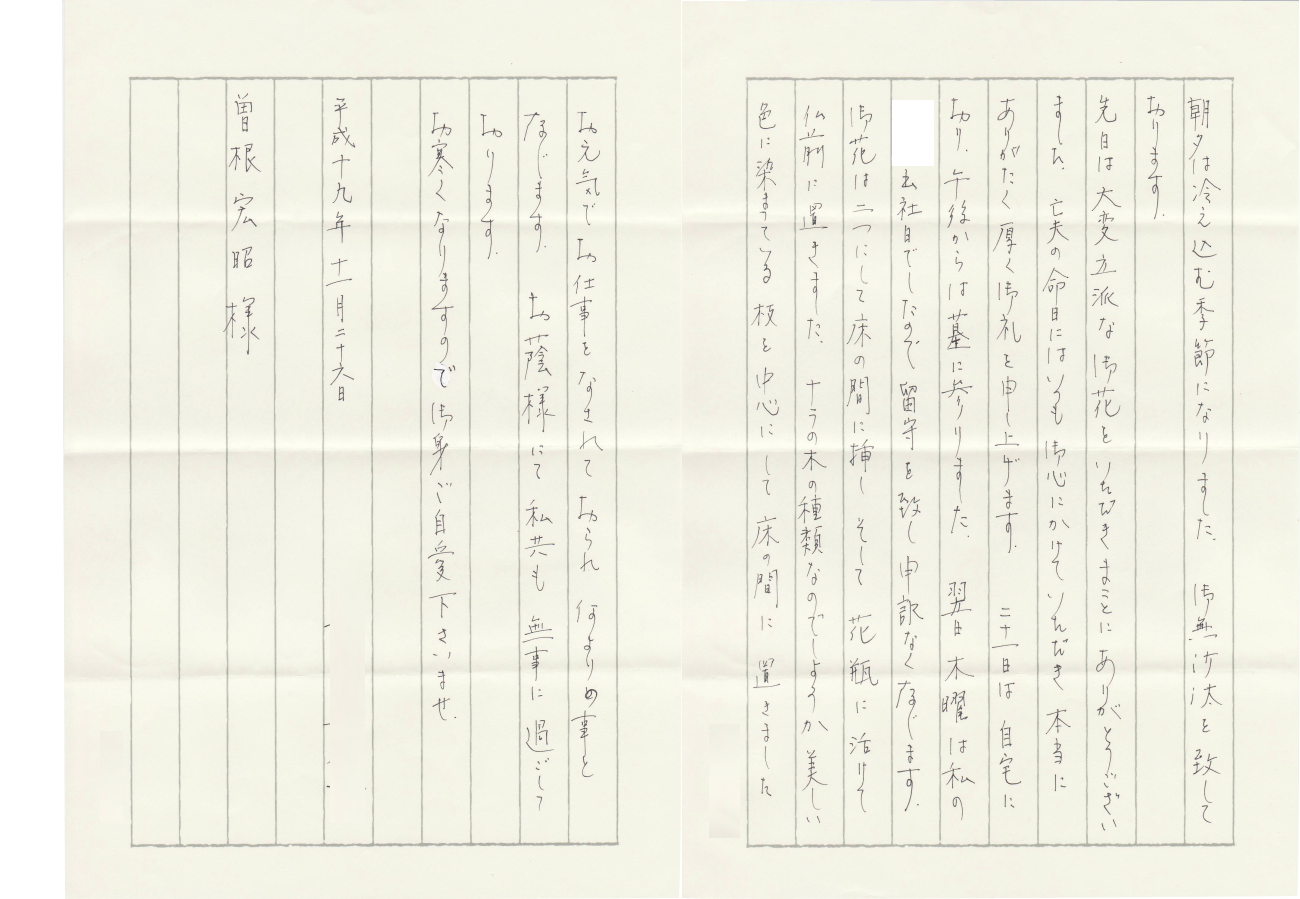 朝夕は冷え込む季節になりました。 御無沙汰を致して
おります。
先日は大変立派な御花をいただきまことにありがとうござい
ました。亡夫の命日にはいつも御心にかけていただき本当に
ありがたく厚く御礼を申し上げます。 二十一日は自宅に
おり、午後からは墓に参りました。 翌日木曜は私の
出社日でしたので留守を致し申訳なく存じます。
御花は二つにして床の間に挿し そして 花瓶に活けて
仏前に置きました。 十ラの木の種類なのでしょうか美しい
色に染まっている枝を中心にして床の間に置きました
お元気でお仕事をなされておられ何よりの事と
存じます。 お蔭様にて私共も無事に過ごして
おります。
お寒くなりますので御身ご自愛下さいませ。
平成十九年十一月二十六日
曽根宏昭様